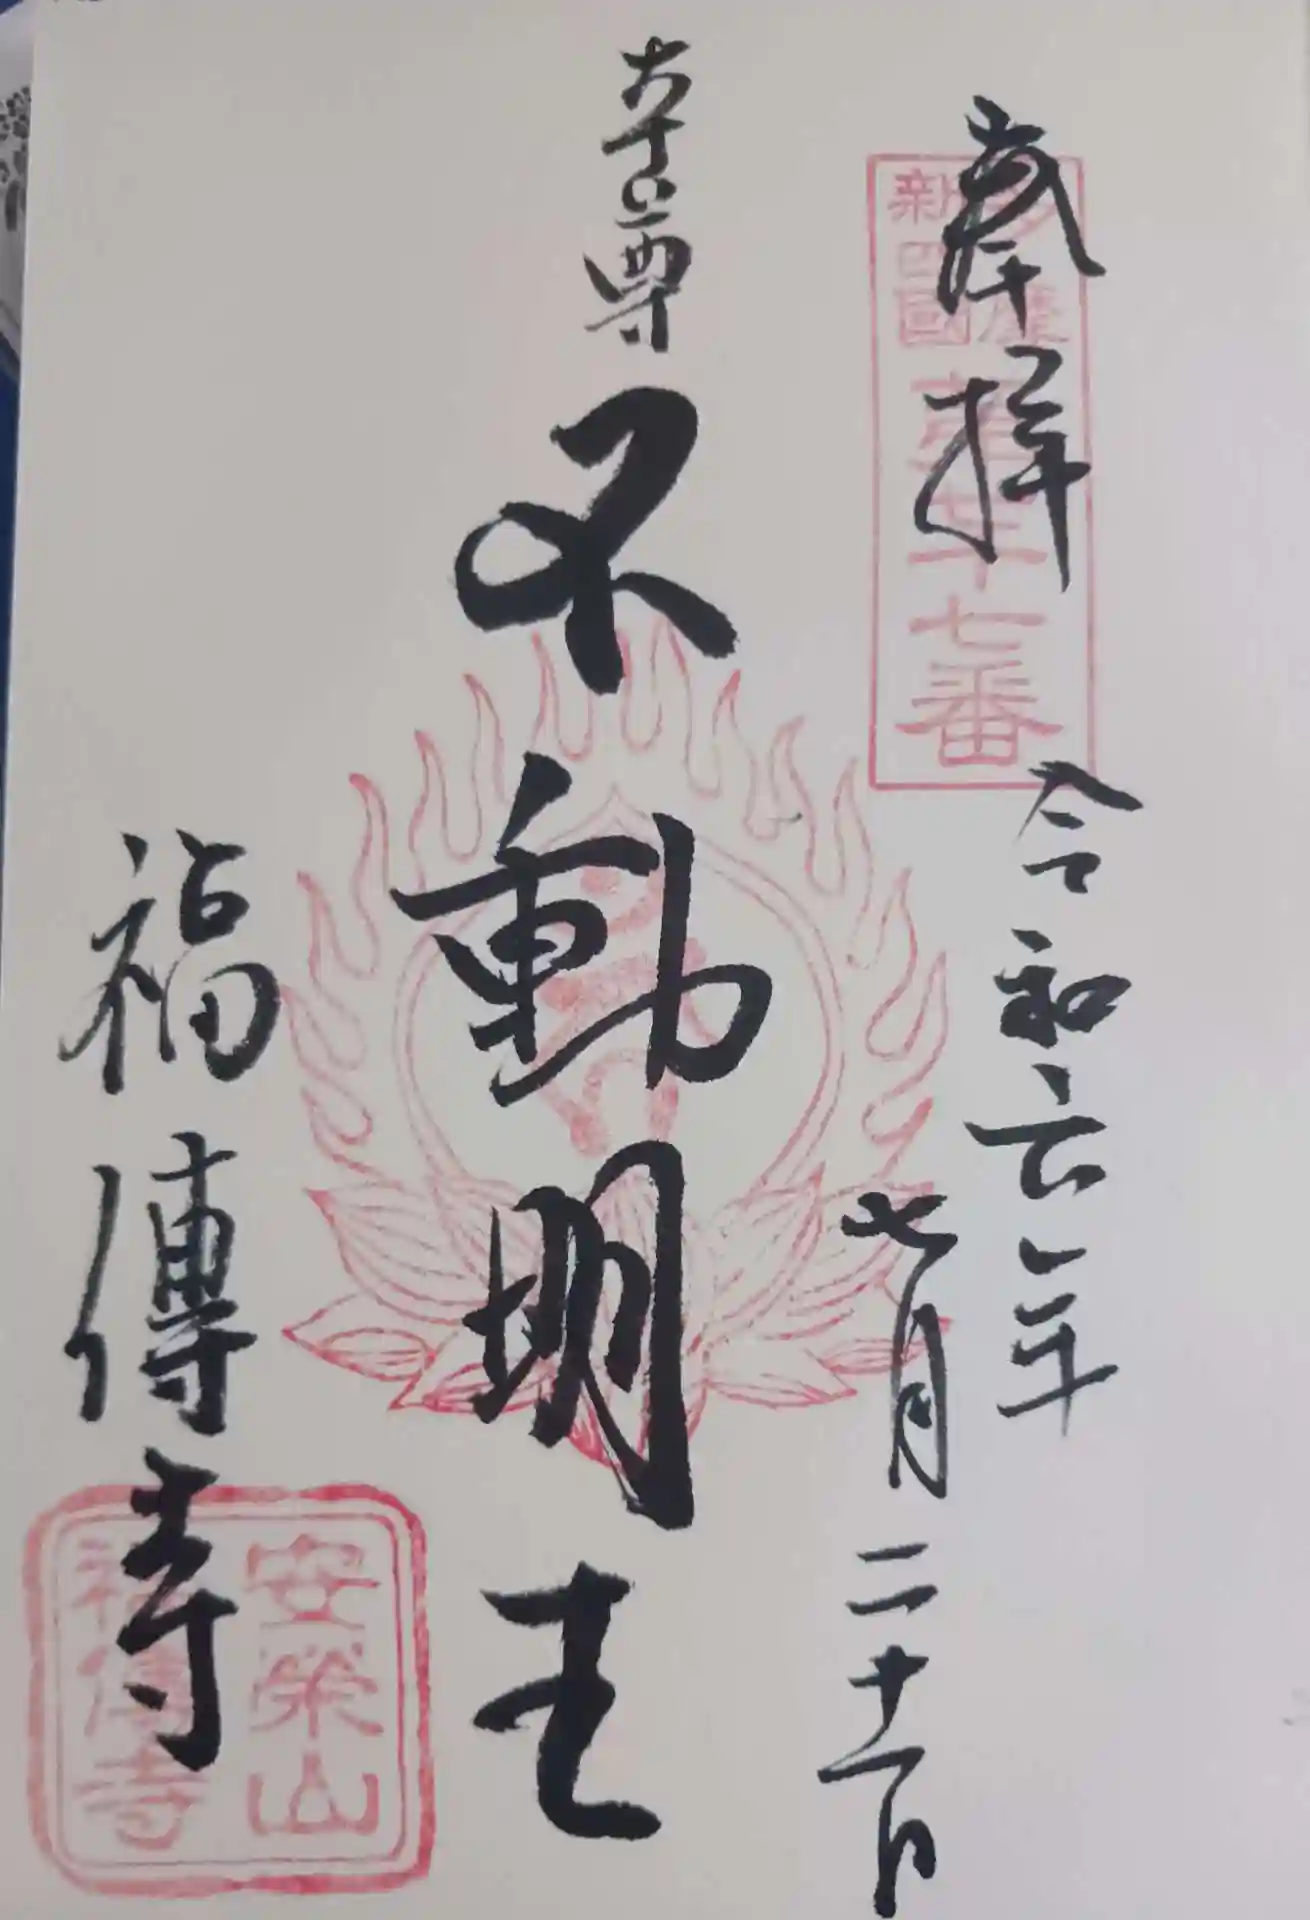 奉拝
多摩
新四國
第三十七番
令和六年
七月二十一日
本尊
不動明王
福傳寺
安榮山
福傳寺